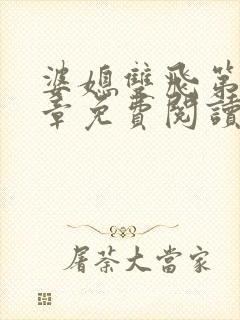 婆媳雙飛第
章免費閱讀
屠茶大當家